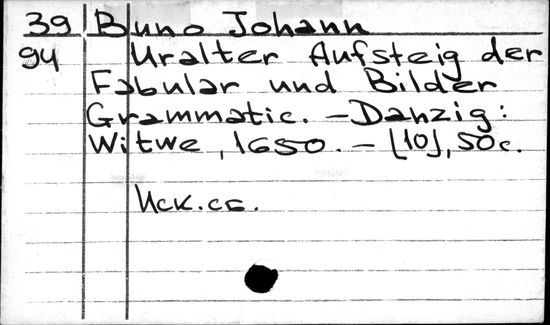 39 Buno Johann
94 Uralter Aufsteig der
Fabular und Bilder
Grammatic. – Danzig:
Witwe, 1650. – [10], 50c.
Иск.сс.